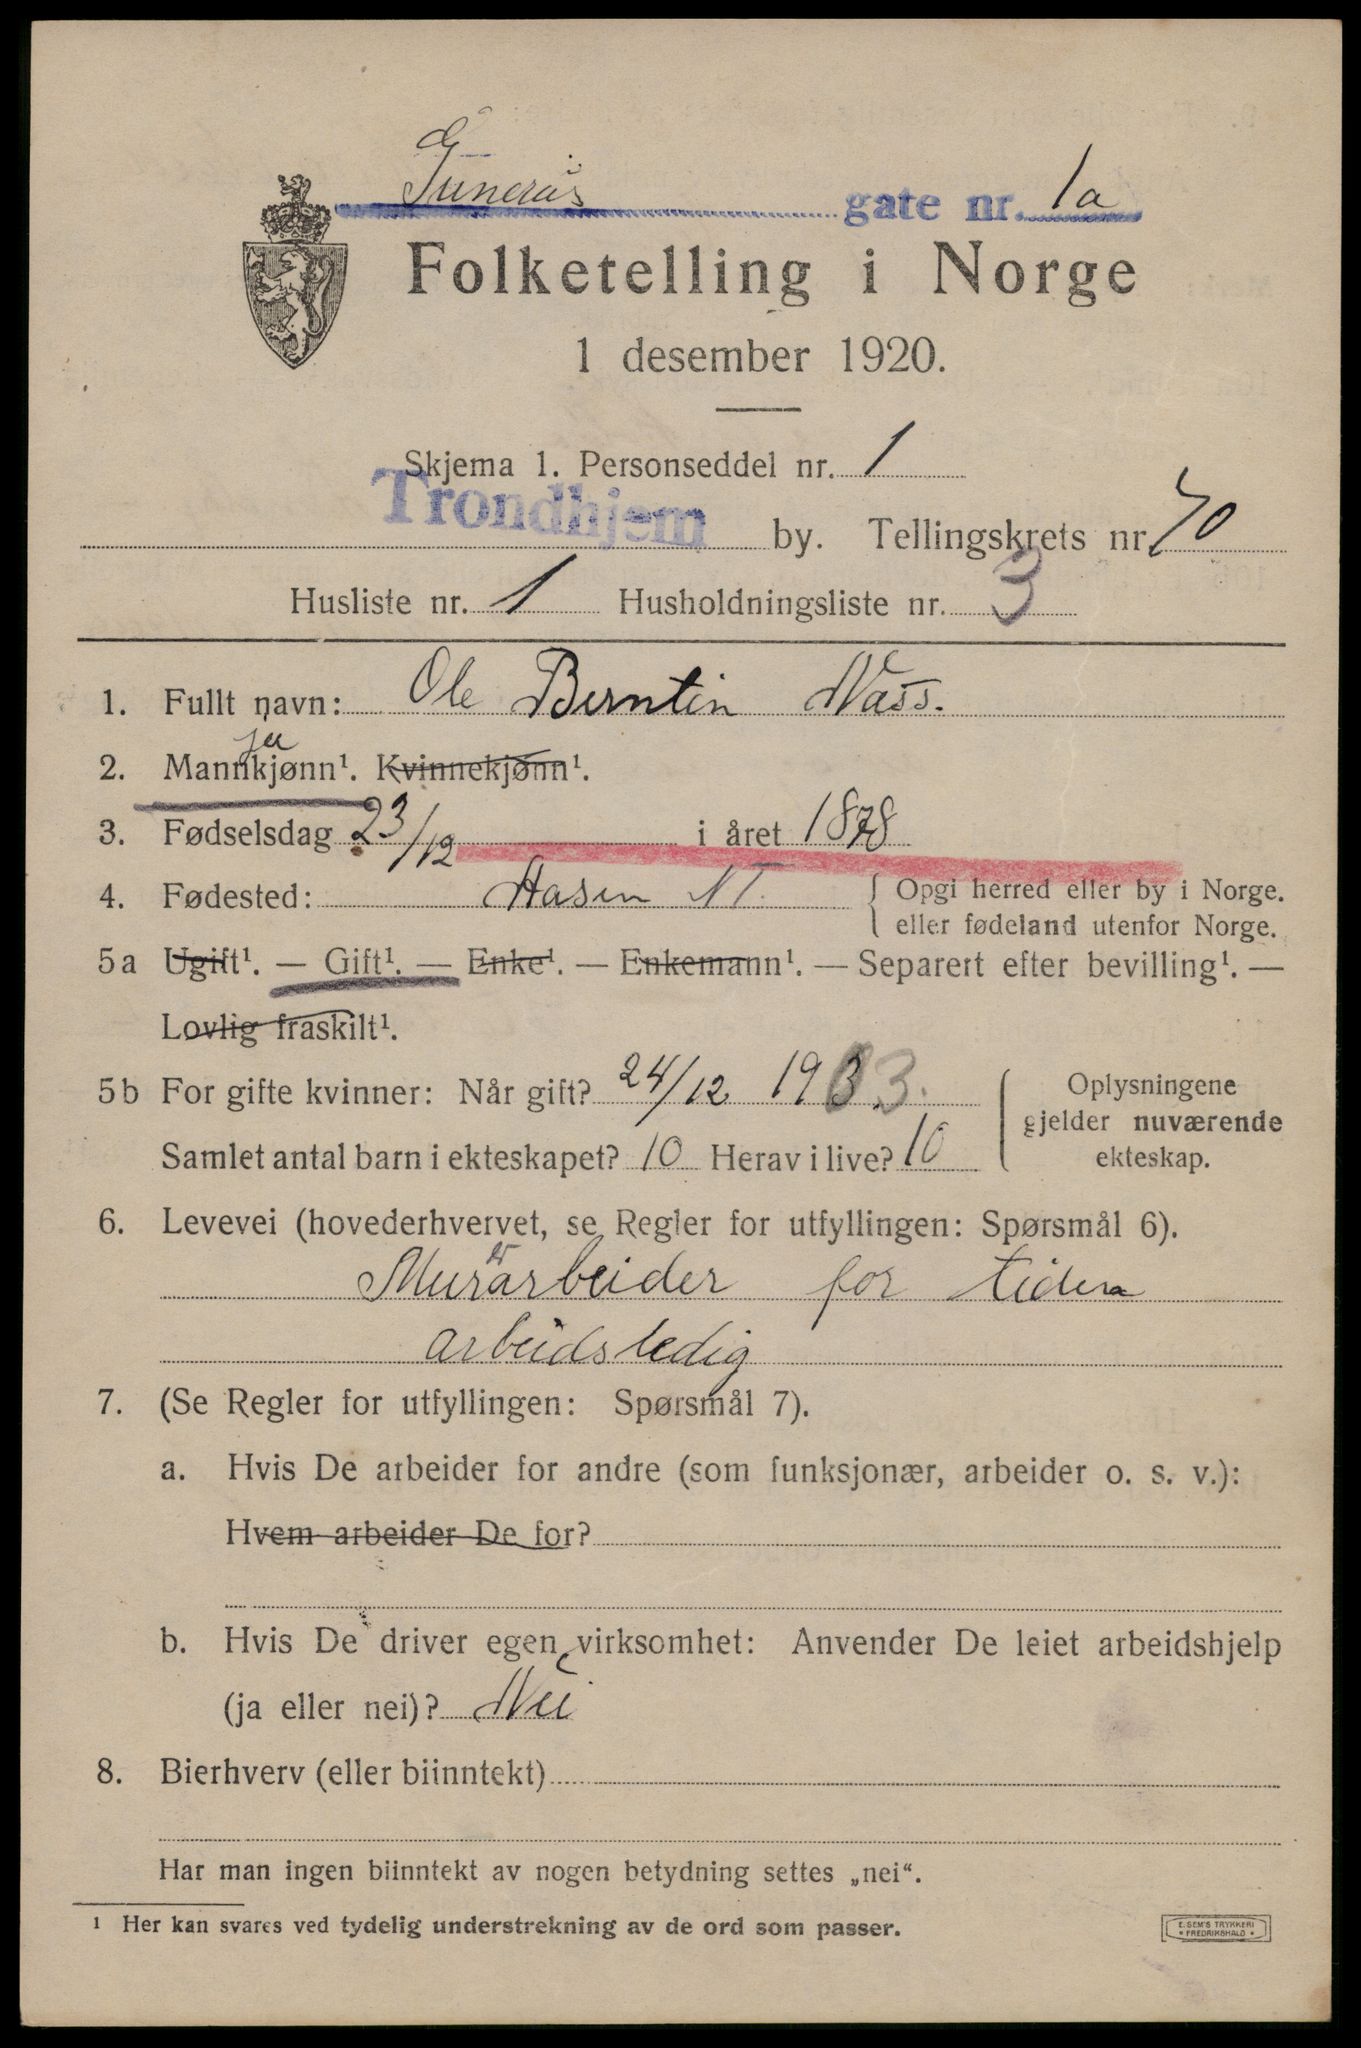 gate nr. 1a
Folketelling i Norge
1 desember 1920.
Skjema 1. Personseddel nr. 1
Trondhjem by. Tellingskrets nr. 70
Husliste nr. 1 Husholdningsliste nr. 3
1. Fullt navn: Ole Berntin Næss.
ja
2. Mannkjønn¹. Kvinnekjønn¹.
3. Fødselsdag 23/12 i året 1878
4. Fødested: Aasen NT. { Opgi herred eller by i Norge.
eller fødeland utenfor Norge.
5a Ugift¹. — Gift¹. — Enke¹. — Enkemann¹. — Separert efter bevilling¹. —
Lovlig fraskilt¹.
5b For gifte kvinner: Når gift? 24/12 1903. Oplysningene
gjelder nuværende
Samlet antal barn i ekteskapet? 10 Herav i live? 10 ekteskap.
6. Levevei (hovederhvervet, se Regler for utfyllingen: Spørsmål 6).
Murerarbeider for tiden
arbeidsledig
7. (Se Regler for utfyllingen: Spørsmål 7).
a. Hvis De arbeider for andre (som funksjonær, arbeider o. s. v.):
Hvem arbeider De for?
b. Hvis De driver egen virksomhet: Anvender De leiet arbeidshjelp
(ja eller nei)? Nei
8. Bierhverv (eller biinntekt)
Har man ingen biinntekt av nogen betydning settes „nei“.
¹ Her kan svares ved tydelig understrekning av de ord som passer.
E. SEM'S TRYKKERI
* FREDRIKSHALD *